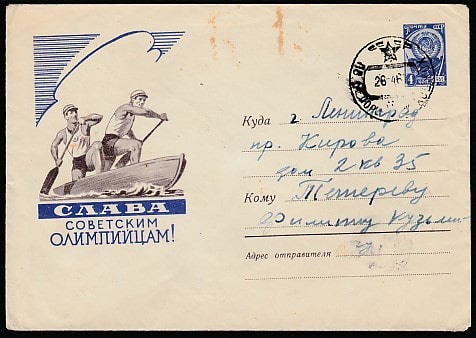 СЛАВА
СОВЕТСКИМ
ОЛИМПИЙЦАМ!
4
Куда г. Ленинград
пр. Кирова
дом 2 кв 35
Кому Тетереву
Филиппу Кузьми-
чу
Адрес отправителя